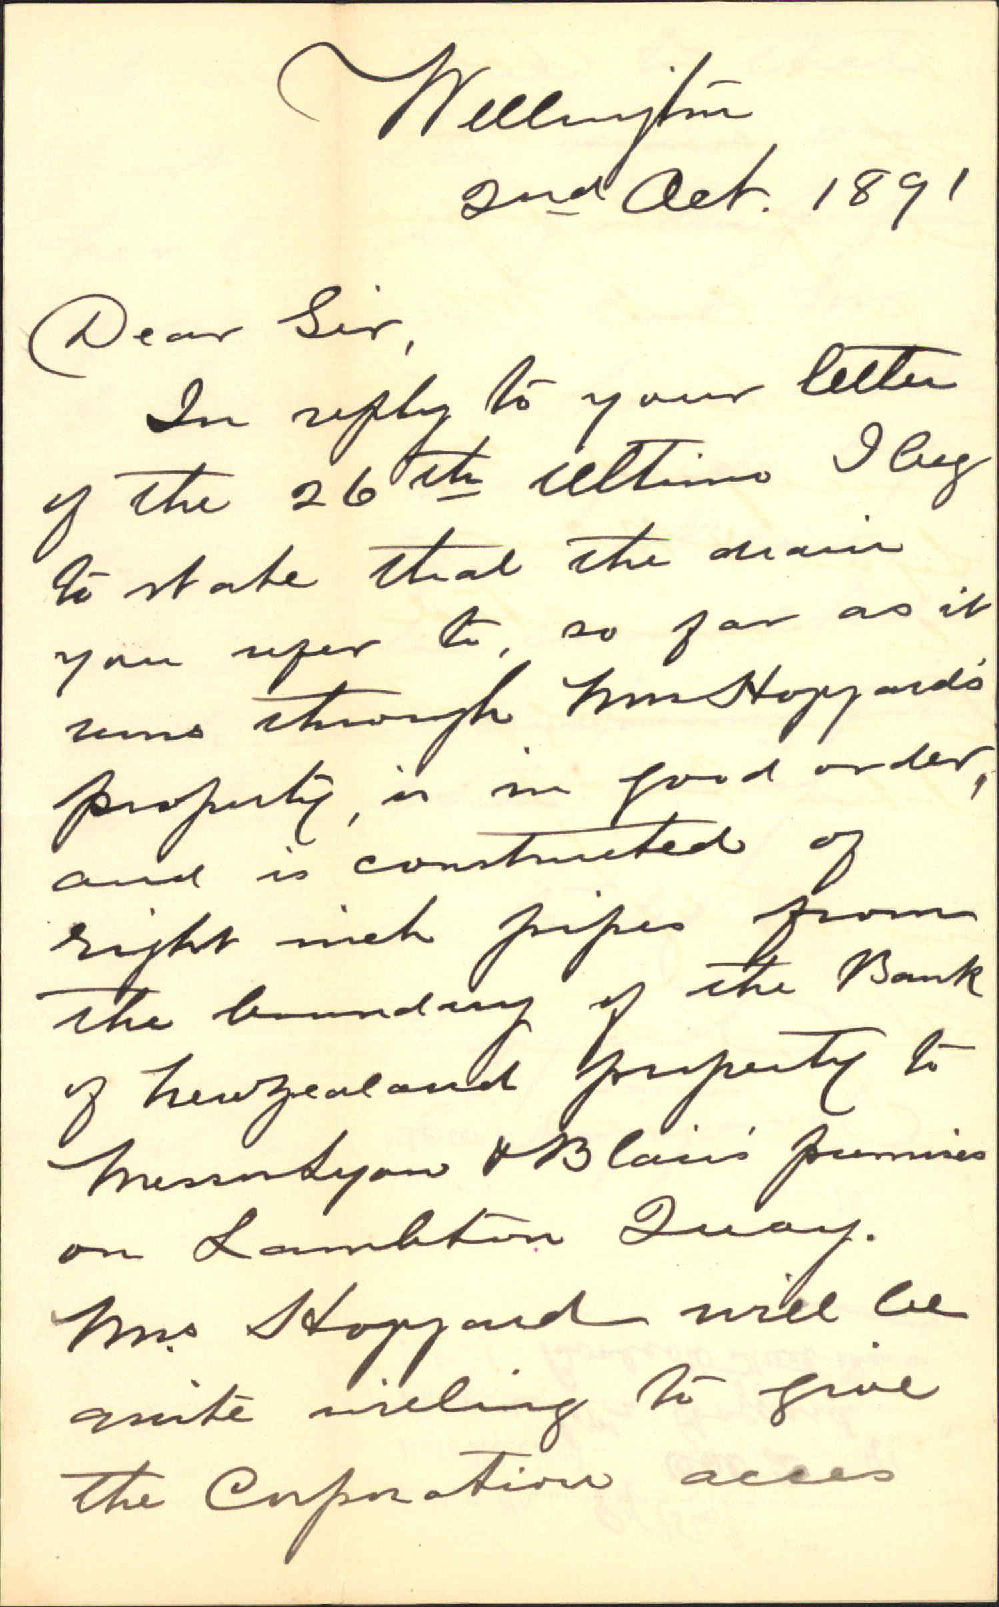 Wellington
2nd Oct. 1891
Dear Sir,
In reply to your letter
of the 26th ultimo I beg
to state that the drain
you refer to, so far as it
runs through Mrs Hoggard's
property, is in good order,
and is constructed of
eight inch pipes from
the boundary of the Bank
of New Zealand property to
Messrs Lyon & Blair's premises
on Lambton Quay.
Mrs. Hoggard will be
quite willing to give
the Corporation access